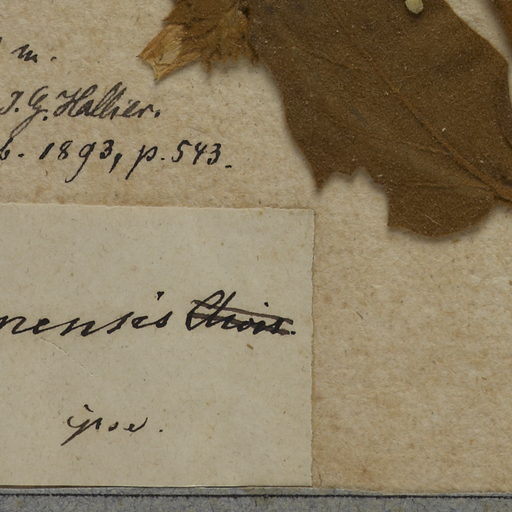 m.
J. G. Hallier.
b. 1893, p. 543.
nensis
ipse.